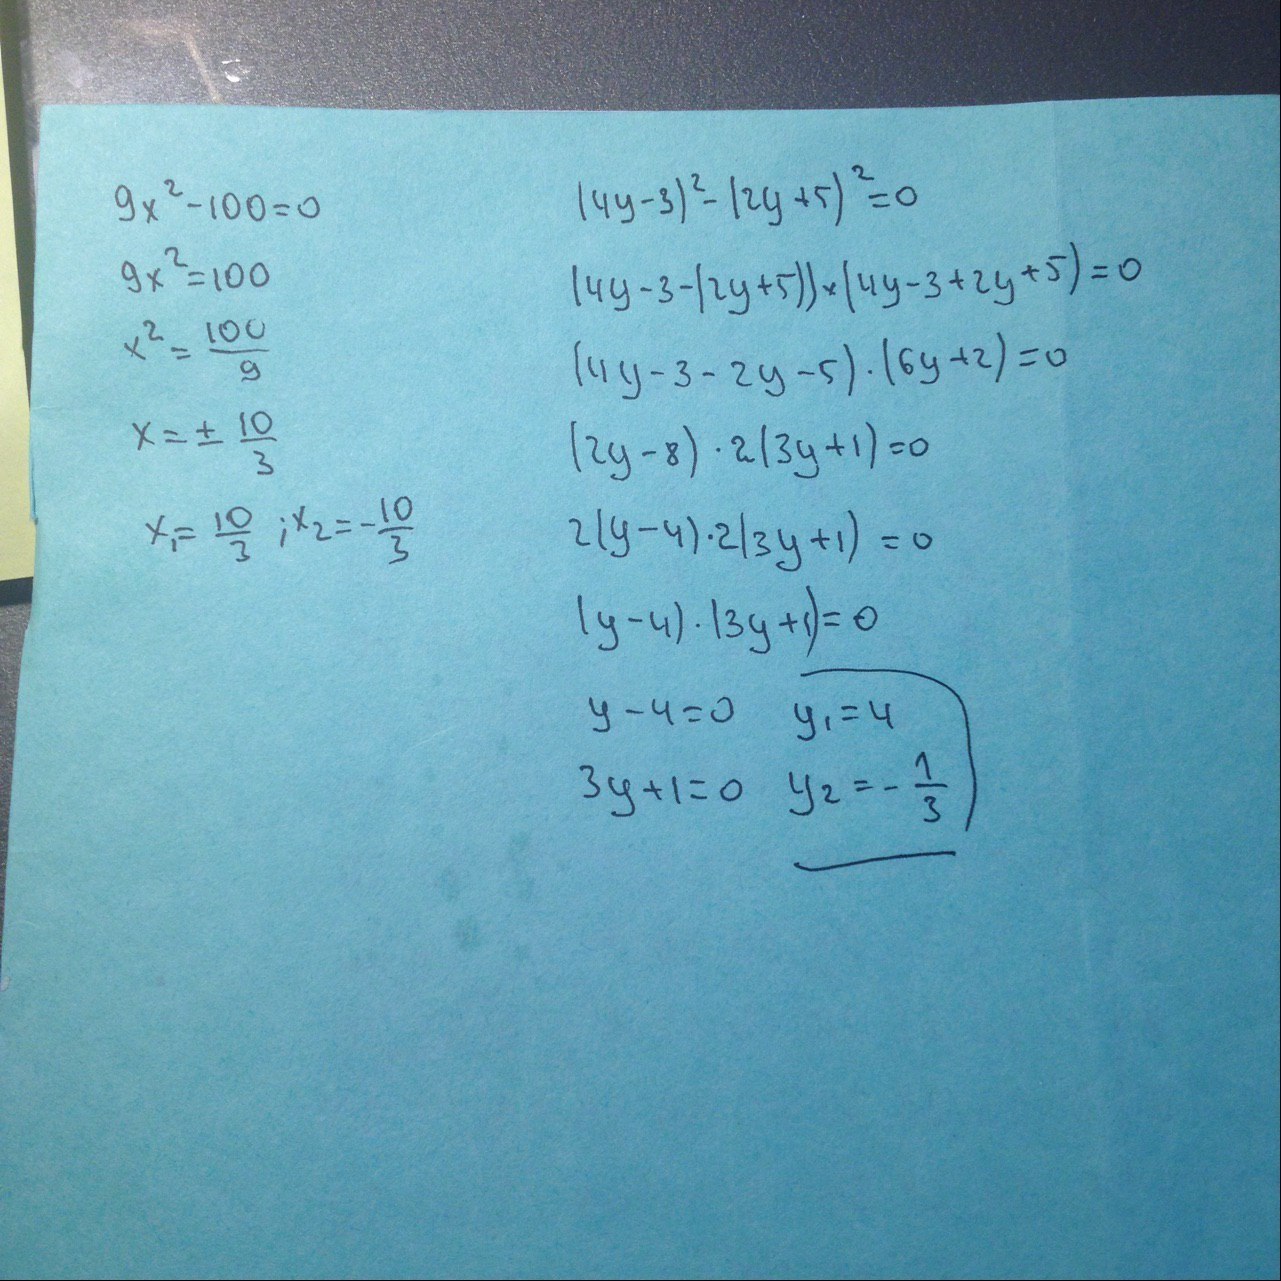 9x²-100=0
9x²=100
x²=100/9
x=±10/3
x₁=10/3 ; x₂=-10/3
(4y-3)²-(2y+5)²=0
(4y-3-(2y+5))×(4y-3+2y+5)=0
(4y-3-2y-5)·(6y+2)=0
(2y-8)·2(3y+1)=0
2(y-4)·2(3y+1)=0
(y-4)·(3y+1)=0
y-4=0 y₁=4
3y+1=0 y₂=-1/3